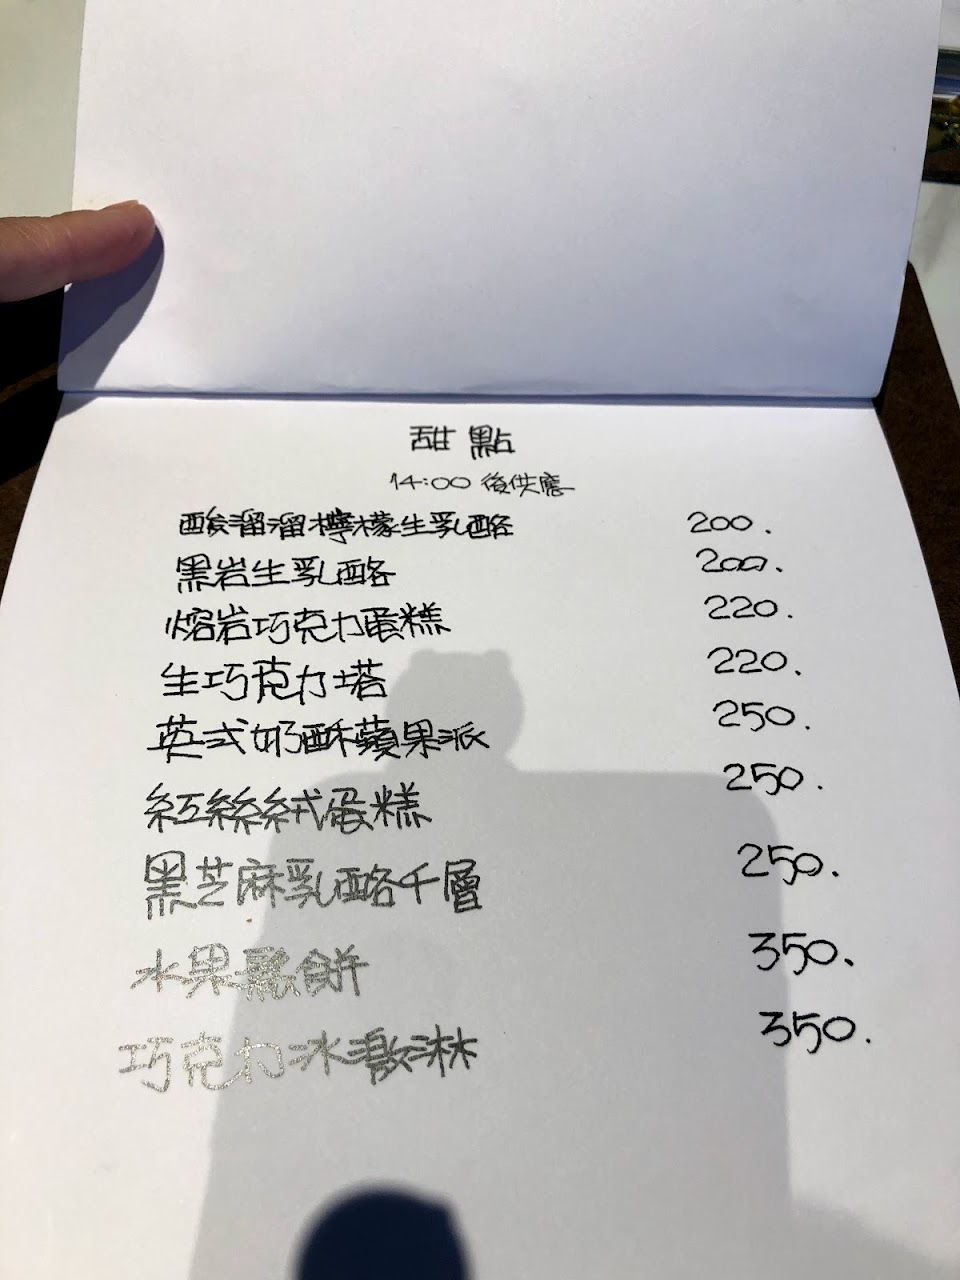 甜點
14:00 後供應
酸溜溜檸檬生乳酪 200.
黑岩生乳酪 200.
熔岩巧克力蛋糕 220.
生巧克力塔 220.
英式奶酥蘋果派 250.
紅絲絨蛋糕 250.
黑芝麻乳酪千層 250.
水果鬆餅 350.
巧克力冰激淋 350.